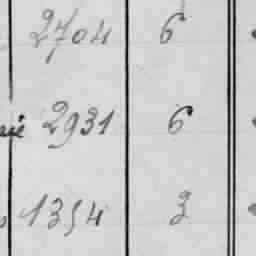 2704 6
2931 6
1354 3